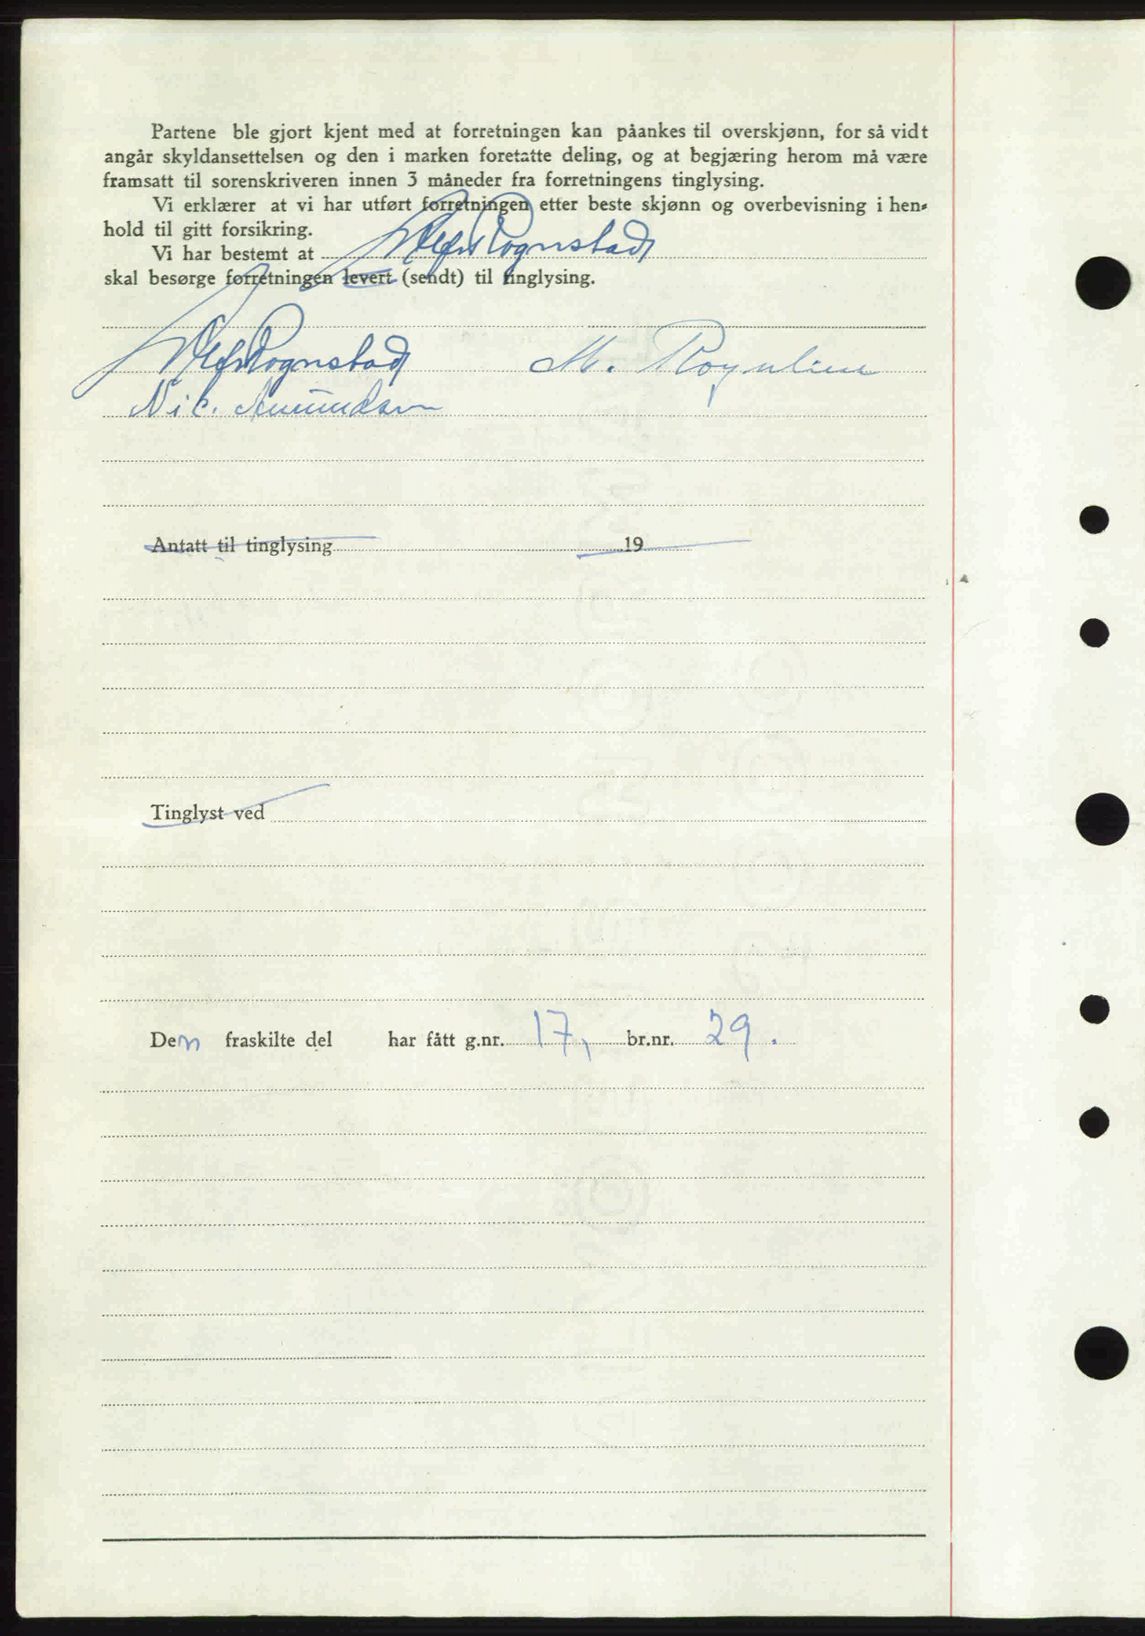 Partene ble gjort kjent med at forretningen kan påankes til overskjønn, for så vidt
angår skyldansettelsen og den i marken foretatte deling, og at begjæring herom må være
framsatt til sorenskriveren innen 3 måneder fra forretningens tinglysing.
Vi erklærer at vi har utført forretningen etter beste skjønn og overbevisning i hen-
hold til gitt forsikring.
Vi har bestemt at Rognstad
skal besørge forretningen levert (sendt) til tinglysing.
Rognstad M.
Nic. Amundsen
Antatt til tinglysing 19
Tinglyst ved
Den fraskilte del har fått g.nr. 17, br.nr. 29.